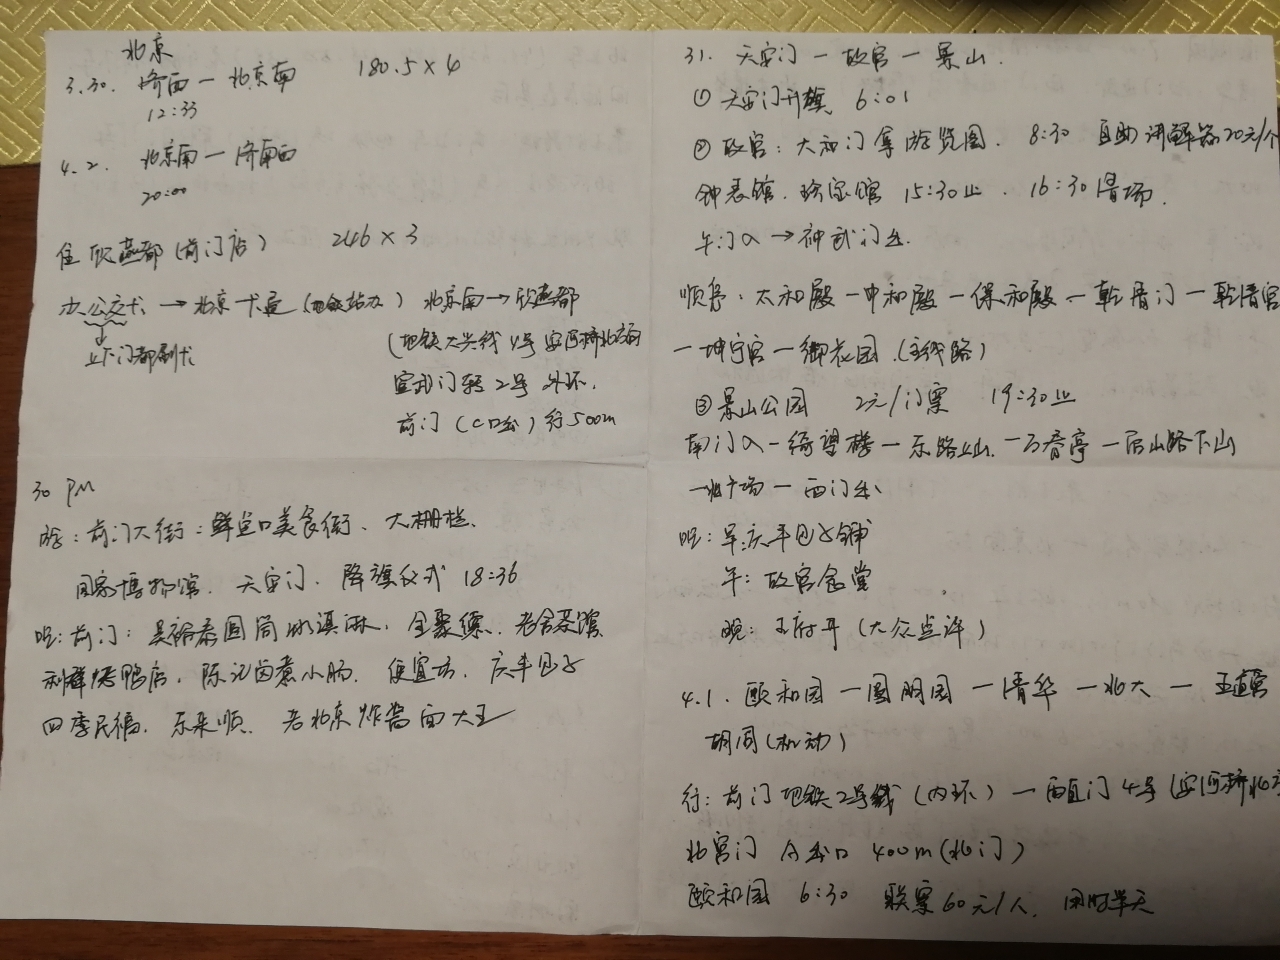 北京
3.30. 济西—北京南 180.5×4
12:33
4.2. 北京南—济南西
20:00
住 欣燕都(前门店) 246×3
办公交卡→北京一卡通(地铁站办) 北京南→欣燕都
上下门都刷卡
(地铁大兴线4号安河桥北方向
宣武门转2号外环.
前门(C口出)行500m
30 PM
游:前门大街:鲜鱼口美食街、大栅栏.
国家博物馆. 天安门. 降旗仪式 18:36
吃:前门:吴裕泰圆筒冰淇淋. 全聚德. 老舍茶馆
利群烤鸭店. 陈记卤煮小肠. 便宜坊. 庆丰包子
四季民福. 东来顺. 老北京炸酱面大王
31. 天安门—故宫—景山.
① 天安门升旗 6:01
② 故宫:太和门拿游览图. 8:30 自助讲解器20元/个
钟表馆. 珍宝馆 15:30止. 16:30清场.
午门入→神武门出.
顺序:太和殿—中和殿—保和殿—乾清门—乾清宫
—坤宁宫—御花园(主线路)
③景山公园 2元/门票 19:30止
南门入—绮望楼—东路上山.—万春亭—后山路下山
—北广场—西门出
吃:早:庆丰包子铺
午:故宫食堂
晚:王府井(大众点评)
4.1. 颐和园—圆明园—清华—北大—
胡同(机动)
行:前门地铁2号线(内环)—西直门4号(安河桥北方
北宫门 出口 400m(北门)
颐和园 6:30 联票60元/人. 用时半天